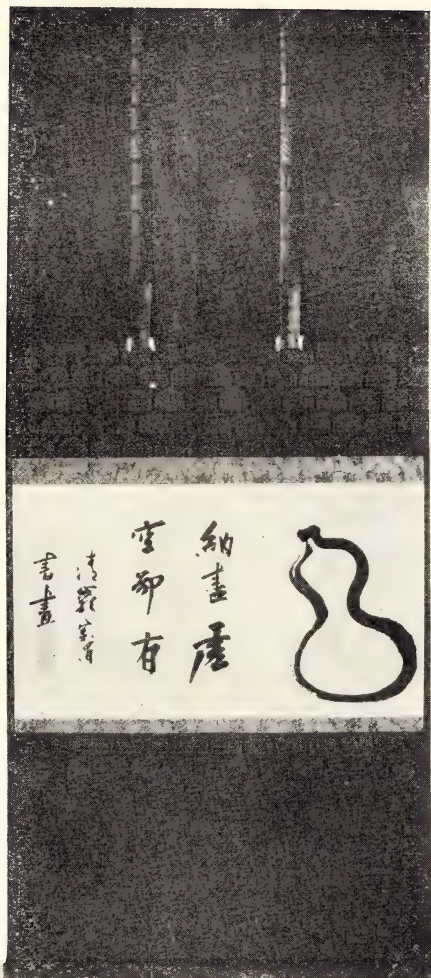 納盡虛
空却有
清巖宗渭
書畫